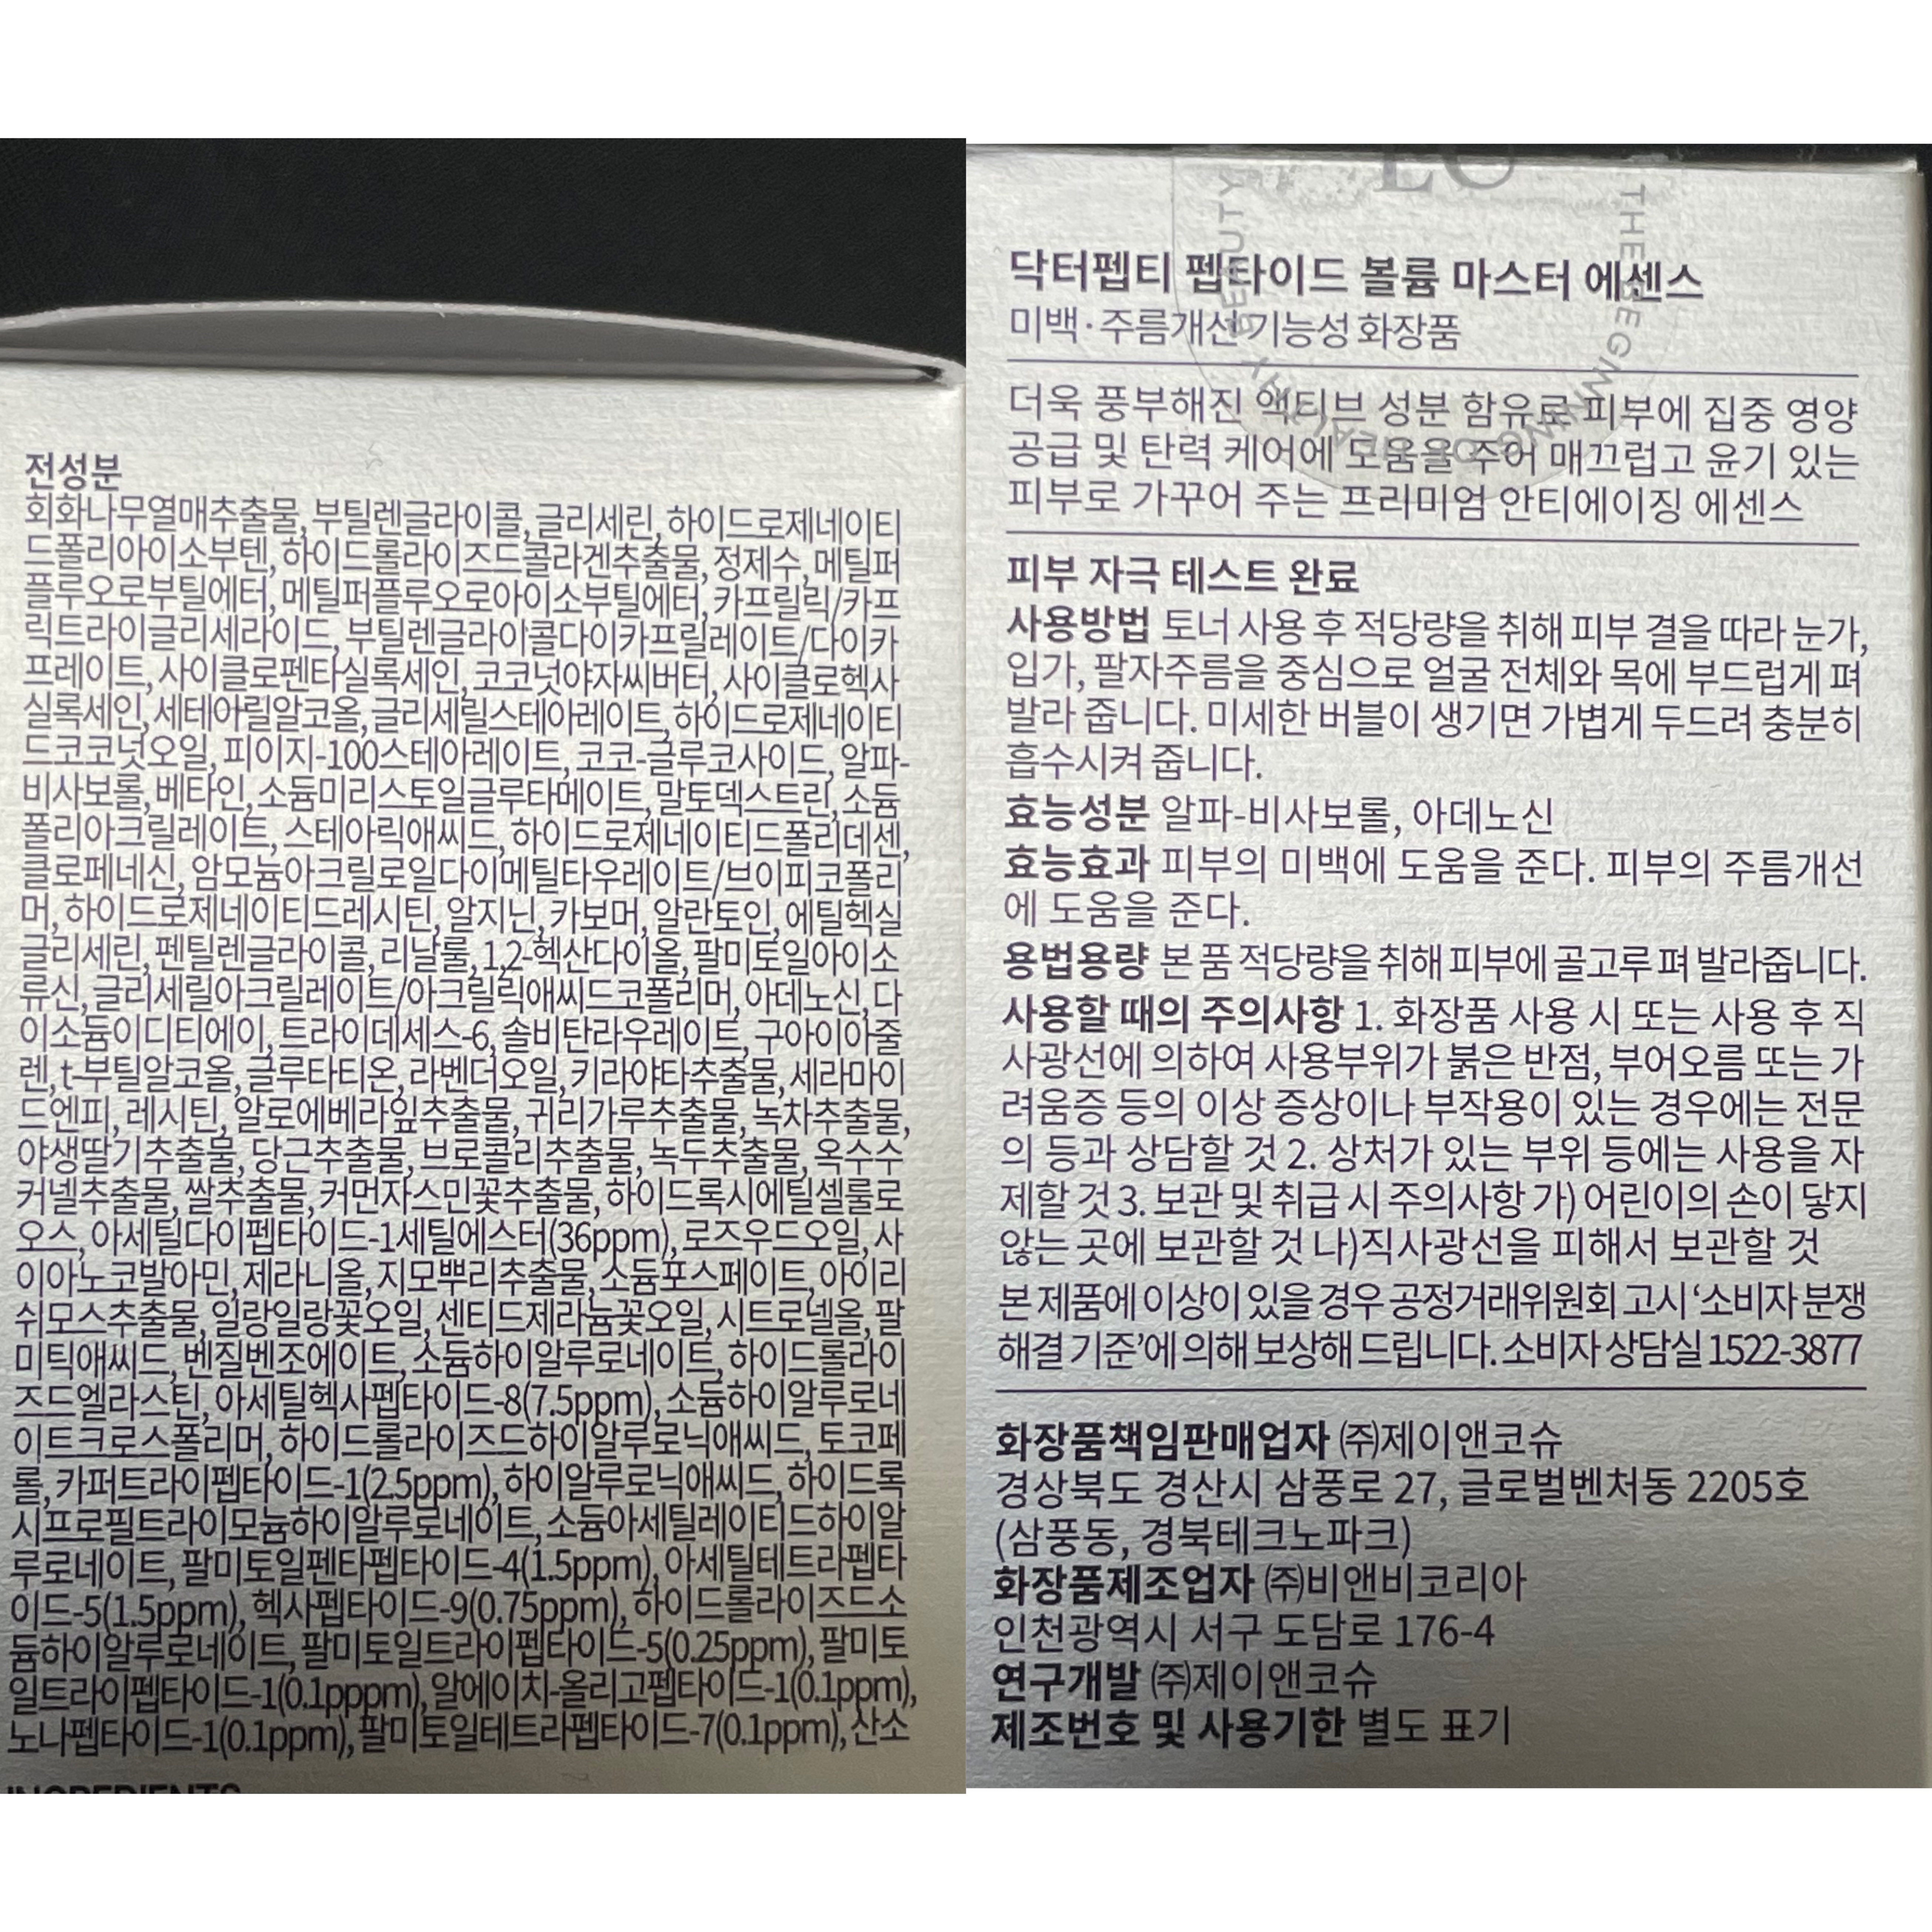 전성분
회화나무열매추출물, 부틸렌글라이콜, 글리세린, 하이드로제네이티
드폴리아이소부텐, 하이드롤라이즈드콜라겐추출물, 정제수, 메틸퍼
플루오로부틸에터, 메틸퍼플루오로아이소부틸에터, 카프릴릭/카프
릭트라이글리세라이드, 부틸렌글라이콜다이카프릴레이트/다이카
프레이트, 사이클로펜타실록세인, 코코넛야자씨버터, 사이클로헥사
실록세인, 세테아릴알코올, 글리세릴스테아레이트, 하이드로제네이티
드코코넛오일, 피이지-100스테아레이트, 코코-글루코사이드, 알파-
비사보롤, 베타인, 소듐미리스토일글루타메이트, 말토덱스트린, 소듐
폴리아크릴레이트, 스테아릭애씨드, 하이드로제네이티드폴리데센,
클로페네신, 암모늄아크릴로일다이메틸타우레이트/브이피코폴리
머, 하이드로제네이티드레시틴, 알지닌, 카보머, 알란토인, 에틸헥실
글리세린, 펜틸렌글라이콜, 리날룰, 1,2-헥산다이올, 팔미토일아이소
류신, 글리세릴아크릴레이트/아크릴릭애씨드코폴리머, 아데노신, 다
이소듐이디티에이, 트라이데세스-6, 솔비탄라우레이트, 구아이아줄
렌, t-부틸알코올, 글루타티온, 라벤더오일, 키라야타추출물, 세라마이
드엔피, 레시틴, 알로에베라잎추출물, 귀리가루추출물, 녹차추출물,
야생딸기추출물, 당근추출물, 브로콜리추출물, 녹두추출물, 옥수수
커넬추출물, 쌀추출물, 커먼자스민꽃추출물, 하이드록시에틸셀룰로
오스, 아세틸다이펩타이드-1세틸에스터(36ppm), 로즈우드오일, 사
이아노코발아민, 제라니올, 지모뿌리추출물, 소듐포스페이트, 아이리
쉬모스추출물, 일랑일랑꽃오일, 센티드제라늄꽃오일, 시트로넬올, 팔
미틱애씨드, 벤질벤조에이트, 소듐하이알루로네이트, 하이드롤라이
즈드엘라스틴, 아세틸헥사펩타이드-8(7.5ppm), 소듐하이알루로네
이트크로스폴리머, 하이드롤라이즈드하이알루로닉애씨드, 토코페
롤, 카퍼트라이펩타이드-1(2.5ppm), 하이알루로닉애씨드, 하이드록
시프로필트라이모늄하이알루로네이트, 소듐아세틸레이티드하이알
루로네이트, 팔미토일펜타펩타이드-4(1.5ppm), 아세틸테트라펩타
이드-5(1.5ppm), 헥사펩타이드-9(0.75ppm), 하이드롤라이즈드소
듐하이알루로네이트, 팔미토일트라이펩타이드-5(0.25ppm), 팔미토
일트라이펩타이드-1(0.1pppm), 알에이치-올리고펩타이드-1(0.1ppm),
노나펩타이드-1(0.1ppm), 팔미토일테트라펩타이드-7(0.1ppm), 산소
INGREDIENTS
THE BEGINNING OF HEALTHY BEAUTY
닥터펩티 펩타이드 볼륨 마스터 에센스
미백·주름개선 기능성 화장품
더욱 풍부해진 액티브 성분 함유로 피부에 집중 영양
공급 및 탄력 케어에 도움을 주어 매끄럽고 윤기 있는
피부로 가꾸어 주는 프리미엄 안티에이징 에센스
피부 자극 테스트 완료
사용방법 토너 사용 후 적당량을 취해 피부 결을 따라 눈가,
입가, 팔자주름을 중심으로 얼굴 전체와 목에 부드럽게 펴
발라 줍니다. 미세한 버블이 생기면 가볍게 두드려 충분히
흡수시켜 줍니다.
효능성분 알파-비사보롤, 아데노신
효능효과 피부의 미백에 도움을 준다. 피부의 주름개선
에 도움을 준다.
용법용량 본 품 적당량을 취해 피부에 골고루 펴 발라줍니다.
사용할 때의 주의사항 1. 화장품 사용 시 또는 사용 후 직
사광선에 의하여 사용부위가 붉은 반점, 부어오름 또는 가
려움증 등의 이상 증상이나 부작용이 있는 경우에는 전문
의 등과 상담할 것 2. 상처가 있는 부위 등에는 사용을 자
제할 것 3. 보관 및 취급 시 주의사항 가) 어린이의 손이 닿지
않는 곳에 보관할 것 나)직사광선을 피해서 보관할 것
본 제품에 이상이 있을 경우 공정거래위원회 고시 ‘소비자 분쟁
해결 기준’에 의해 보상해 드립니다. 소비자 상담실 1522-3877
화장품책임판매업자 ㈜제이앤코슈
경상북도 경산시 삼풍로 27, 글로벌벤처동 2205호
(삼풍동, 경북테크노파크)
화장품제조업자 ㈜비앤비코리아
인천광역시 서구 도담로 176-4
연구개발 ㈜제이앤코슈
제조번호 및 사용기한 별도 표기